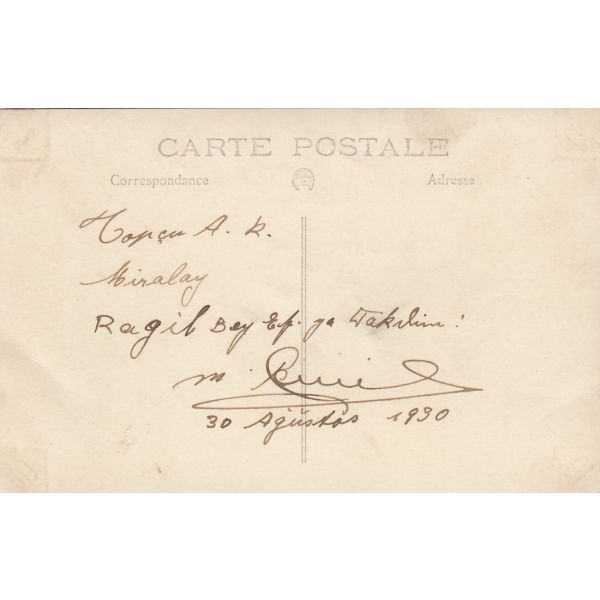 CARTE POSTALE
Correspondance Adresse
Topçu A. K.
Miralay
Ragıb Bey Ef. ya Takdim!
M.
30 Ağustos 1930